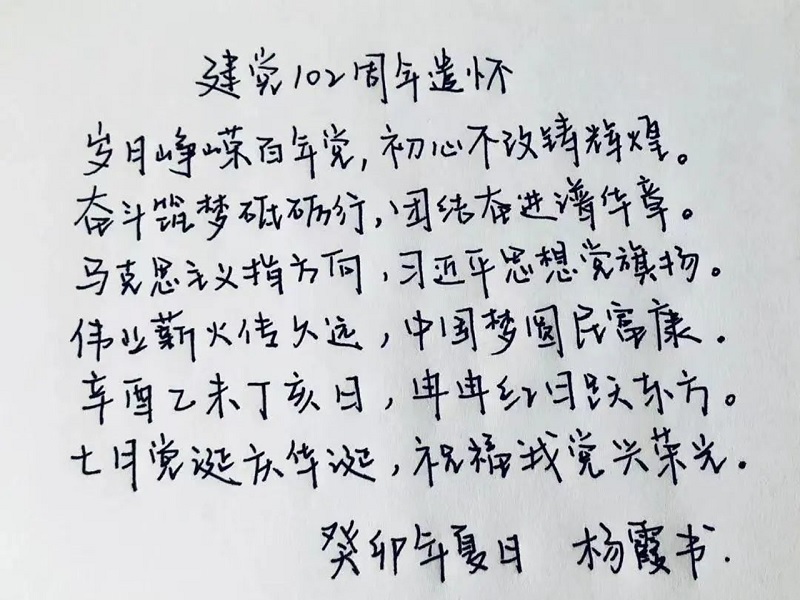 建党102周年遣怀
岁月峥嵘百年党,初心不改铸辉煌。
奋斗筑梦砥砺行,团结奋进谱华章。
马克思主义指方向,习近平思想党旗扬。
伟业薪火传久远,中国梦圆民富康.
辛酉乙未丁亥日,冉冉红日跃东方。
七月党诞庆华诞,祝福我党兴荣光.
癸卯年夏日 杨霞书.